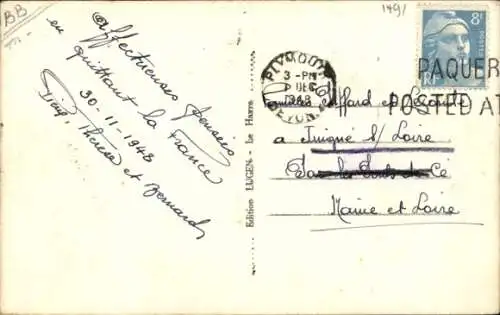 BB
1491
Affectueuses pensées
en quittant la France
30-11-1948
Thérèse et Bernard
Edition LUGEN - Le Havre
PLYMOUTH
3 - PM
DEC
1948
DEVON
8F
POSTES
RF
PAQUEB
POSTED AT
Giffard et
a Juigné s/ Loire
Par les Ponts de Cé
Maine et Loire